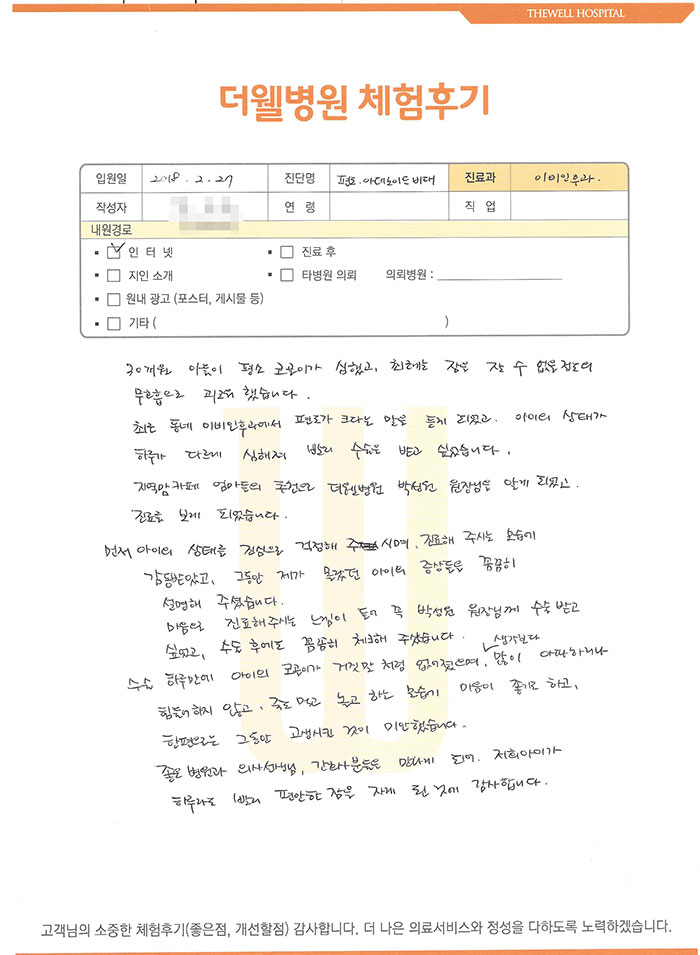 THEWELL HOSPITAL
더웰병원 체험후기
입원일 2018. 2. 27 진단명 편도.아데노이드 비대 진료과 이비인후과.
작성자 연 령 직 업
내원경로
인 터 넷 진료 후
지인 소개 타병원 의뢰 의뢰병원 :
원내 광고 (포스터, 게시물 등)
기타 ( )
30개월 아들이 평소 코골이가 심했고, 최근에는 잠을 잘 수 없을 정도의
무호흡으로 괴로워 했습니다.
최근 동네 이비인후과에서 편도가 크다는 말을 듣게 되었고. 아이의 상태가
하루가 다르게 심해져 빨리 수술을 받고 싶었습니다.
지역맘카페 엄마들의 추천으로 더웰병원 박성원 원장님을 알게 되었고.
진료를 보게 되었습니다.
먼저 아이의 상태를 진심으로 걱정해 주시며, 진료해 주시는 모습에
감동받았고, 그동안 제가 몰랐던 아이의 증상들을 꼼꼼히
설명해 주셨습니다.
마음으로 진료해주시는 느낌이 들어 꼭 박성원 원장님께 수술 받고
싶었고, 수술 후에도 꼼꼼히 체크해 주셨습니다.
수술 하루만에 아이의 코골이가 거짓말 처럼 없어졌으며, 생각보다 많이 아파하거나
힘들어하지 않고, 죽도 먹고 놀고 하는 모습에 마음이 좋기도 하고,
한편으로는 그동안 고생시킨 것이 미안했습니다.
좋은 병원과 의사선생님, 간호사분들을 만나게 되어. 저희아이가
하루라도 빨리 편안한 잠을 자게 된 것에 감사합니다.
고객님의 소중한 체험후기(좋은점, 개선할점) 감사합니다. 더 나은 의료서비스와 정성을 다하도록 노력하겠습니다.